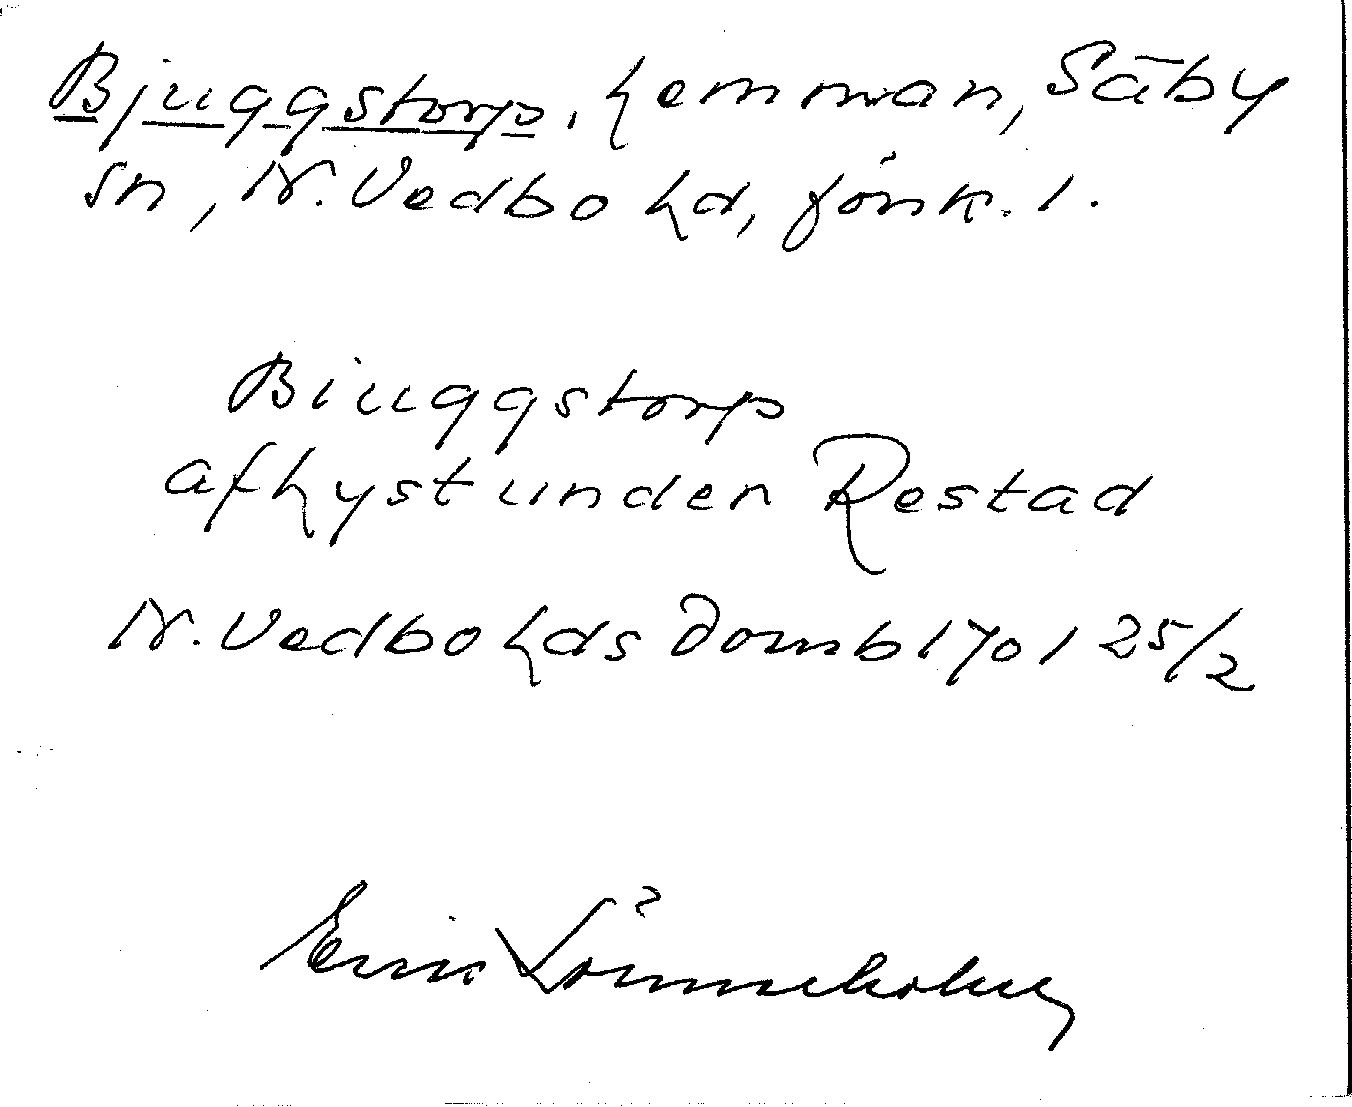 Bjuggstorp, hemman, Säby
sn, N. Vedbo hd, Jönk. l.
Biuggstorp
afhyst under Restad
N. Vedbo hds Domb 1701 25/2
Eric